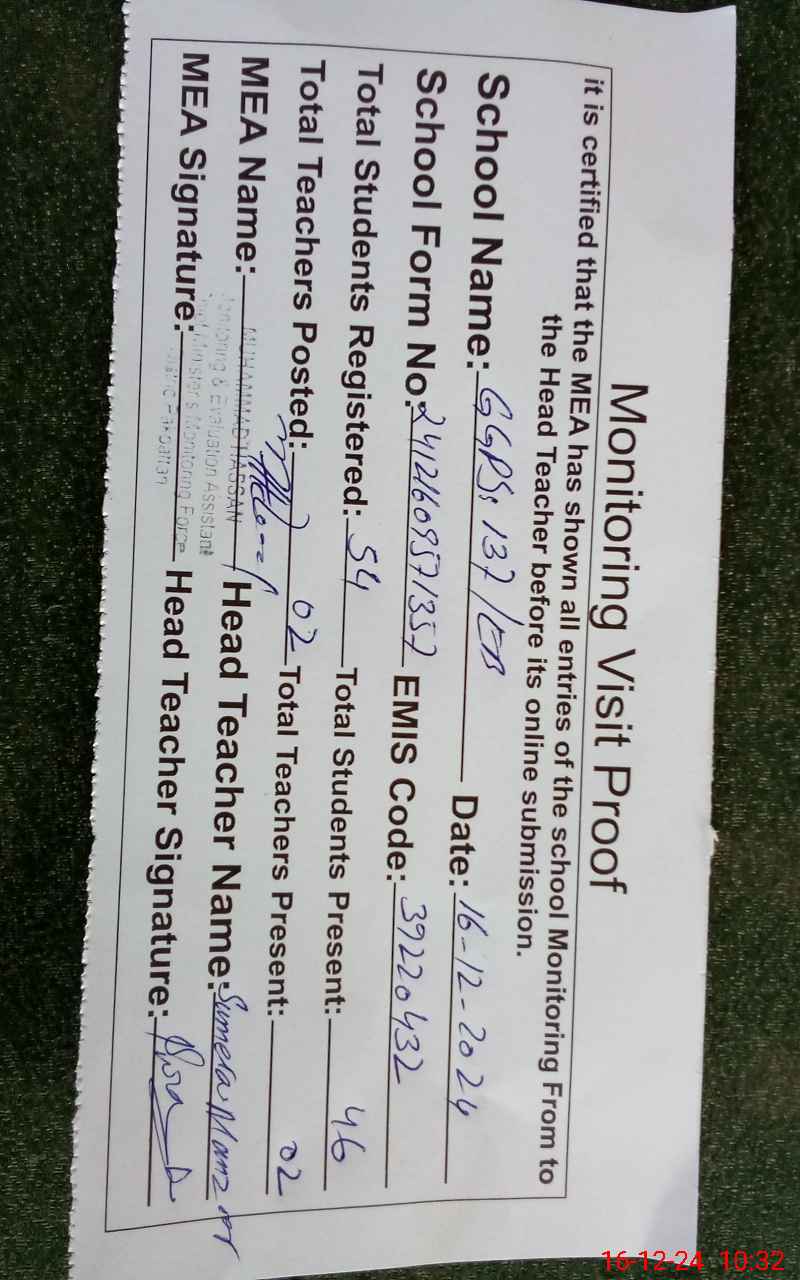 Monitoring Visit Proof
it is certified that the MEA has shown all entries of the school Monitoring From to
the Head Teacher before its online submission.
School Name: GGPS: 137/EB Date: 16-12-2024
School Form No: 24121609571357 EMIS Code: 39220432
Total Students Registered: 54 Total Students Present: 46
Total Teachers Posted: 02 Total Teachers Present: 02
MEA Name: MUHAMMAD HASSAN Head Teacher Name: Sumera Manzoor
Monitoring & Evaluation Assistant
MEA Signature: Chief Minister's Monitoring Force Head Teacher Signature:
District Pakpattan
16-12-24 10:32